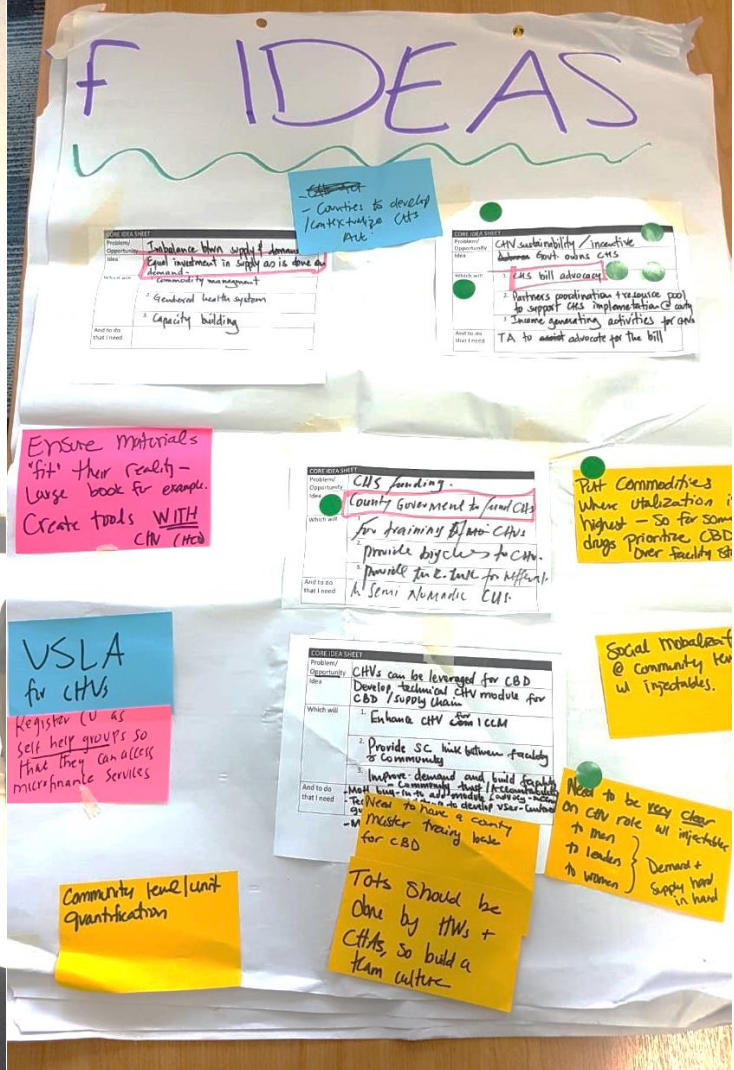 F IDEAS
- Counties to develop
/contextualize CHS
Act
CORE IDEA SHEET
Problem/
Opportunity
Imbalance btwn supply & demand
Idea
Equal investment in supply as is done on
demand-
Which will
commodity managment
2. Gendered health system
3. Capacity building
And to do
that I need
CORE IDEA SHEET
Problem/
Opportunity
CHV sustainability / incentive
Idea
Govt. owns CHS
Which will
1. CHS bill advocacy
2. Partners coordination + resource pool
to support CHS implementation @ county
3. Income generating activities for CHVs
And to do
that I need
TA to advocate for the bill
Ensure materials
"fit" their reality -
Large book for example.
Create tools WITH
CORE IDEA SHEET
Problem/
Opportunity
CHS funding.
Idea
County Goverment to fund CHS
Which will
for training CHVs
2. provide bicycles to CHV.
3. provide tuk-tuk for refferal
And to do
that I need
Semi Nomadic CUs.
Put Commodities
Where utalization is
highest - So for some
drugs prioritize CBD
Over facility
VSLA
for CHVs
Register CU as
self help groups so
that they can access
microfinance services
CORE IDEA SHEET
Problem/
Opportunity
CHVs can be leveraged for CBD
Idea
Develop technical CHV module for
CBD / supply chain
Which will
1. Enhance CHV for ICCM
2. Provide SC link between facility
& Community
3. Improve demand and build facility
- Community trust / Accountability
And to do
that I need
- MoH buy-in to add module
to develop user-centered
Social
@ community
w/ injectables.
Need to be very clear
on CHV role w/ injectable
to men
to leaders
to women
Demand +
Supply hand
in hand
Need to have a county
master training base
for CBD
Community level/unit
quantification
ToTs should be
done by HWs +
CHAs, so build a
team culture